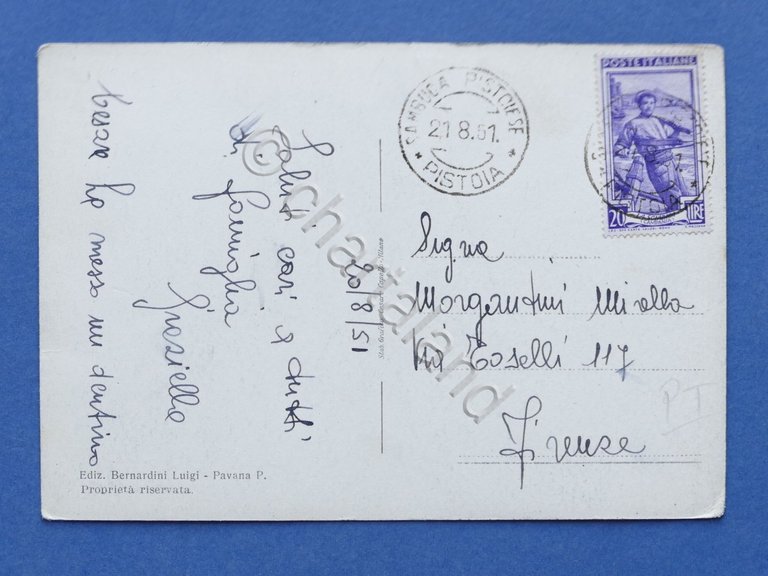 Saluti cari a tutti
di famiglia
Graziella
ho messo un dentino
20/8/51
SAMBUCA PISTOIESE
21.8.51.
* PISTOIA *
POSTE ITALIANE
20 LIRE
Sig.na
Morgantini Mirella
Via Toselli 117
Firenze
PT
Ediz. Bernardini Luigi - Pavana P.
Proprietà riservata.
© chartaland